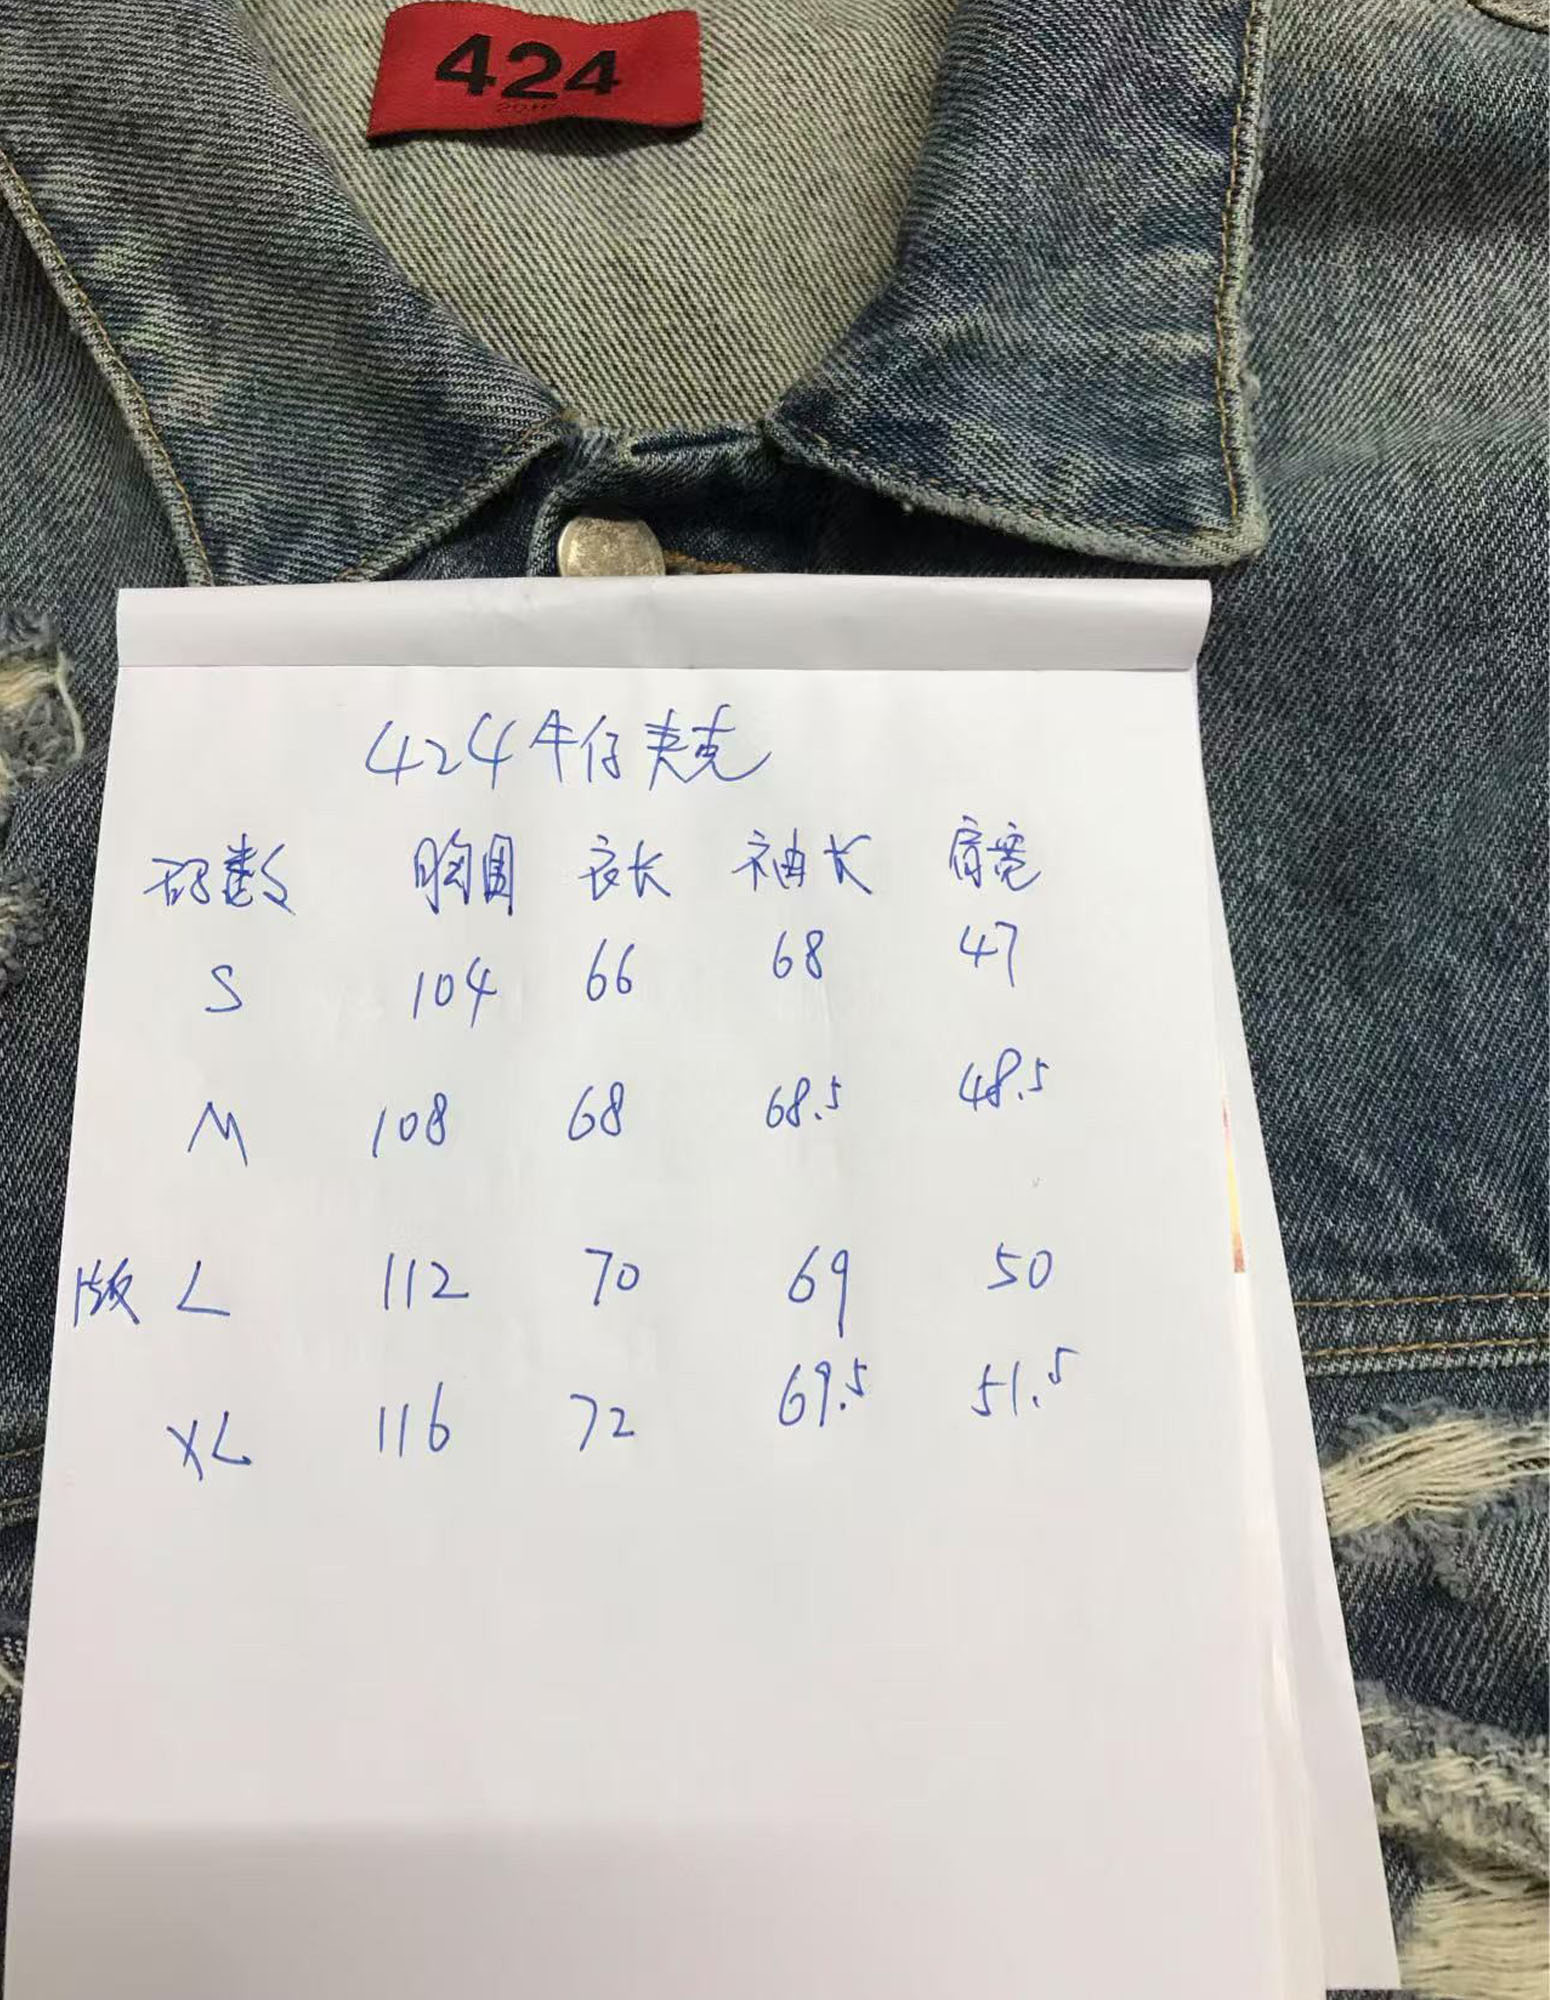 424
424牛仔夹克
码数 胸围 衣长 袖长 肩宽
S 104 66 68 47
M 108 68 68.5 48.5
版 L 112 70 69 50
XL 116 72 69.5 51.5